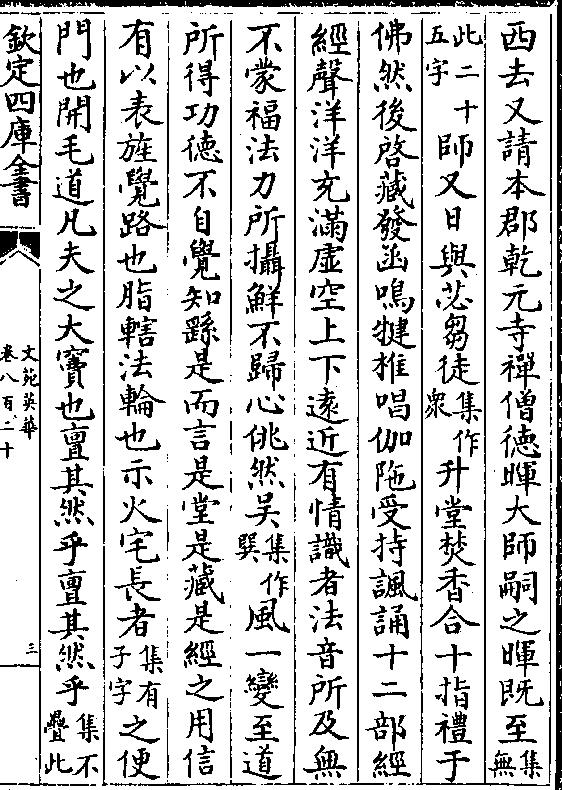 西去又請本郡乾元寺禪僧德暉大師嗣之暉既至集無
此二十五字師又日與苾芻徒集作衆升堂焚香合十指禮于
佛然後啓藏發函鳴犍椎唱伽陁受持諷誦十二部經
經聲洋洋充滿虛空上下遠近有情識者法音所及無
不蒙福法力所攝鮮不歸心佻然吴集作巽風一變至道
所得功德不自覺知繇是而言是堂是藏是經之用信
有以表旌覺路也脂轄法輪也示火宅長者集有子字之便
門也開毛道凡夫之大竇也亶其然乎亶其然乎集不疊此
欽定四庫全書
文苑英華
卷八百二十
三